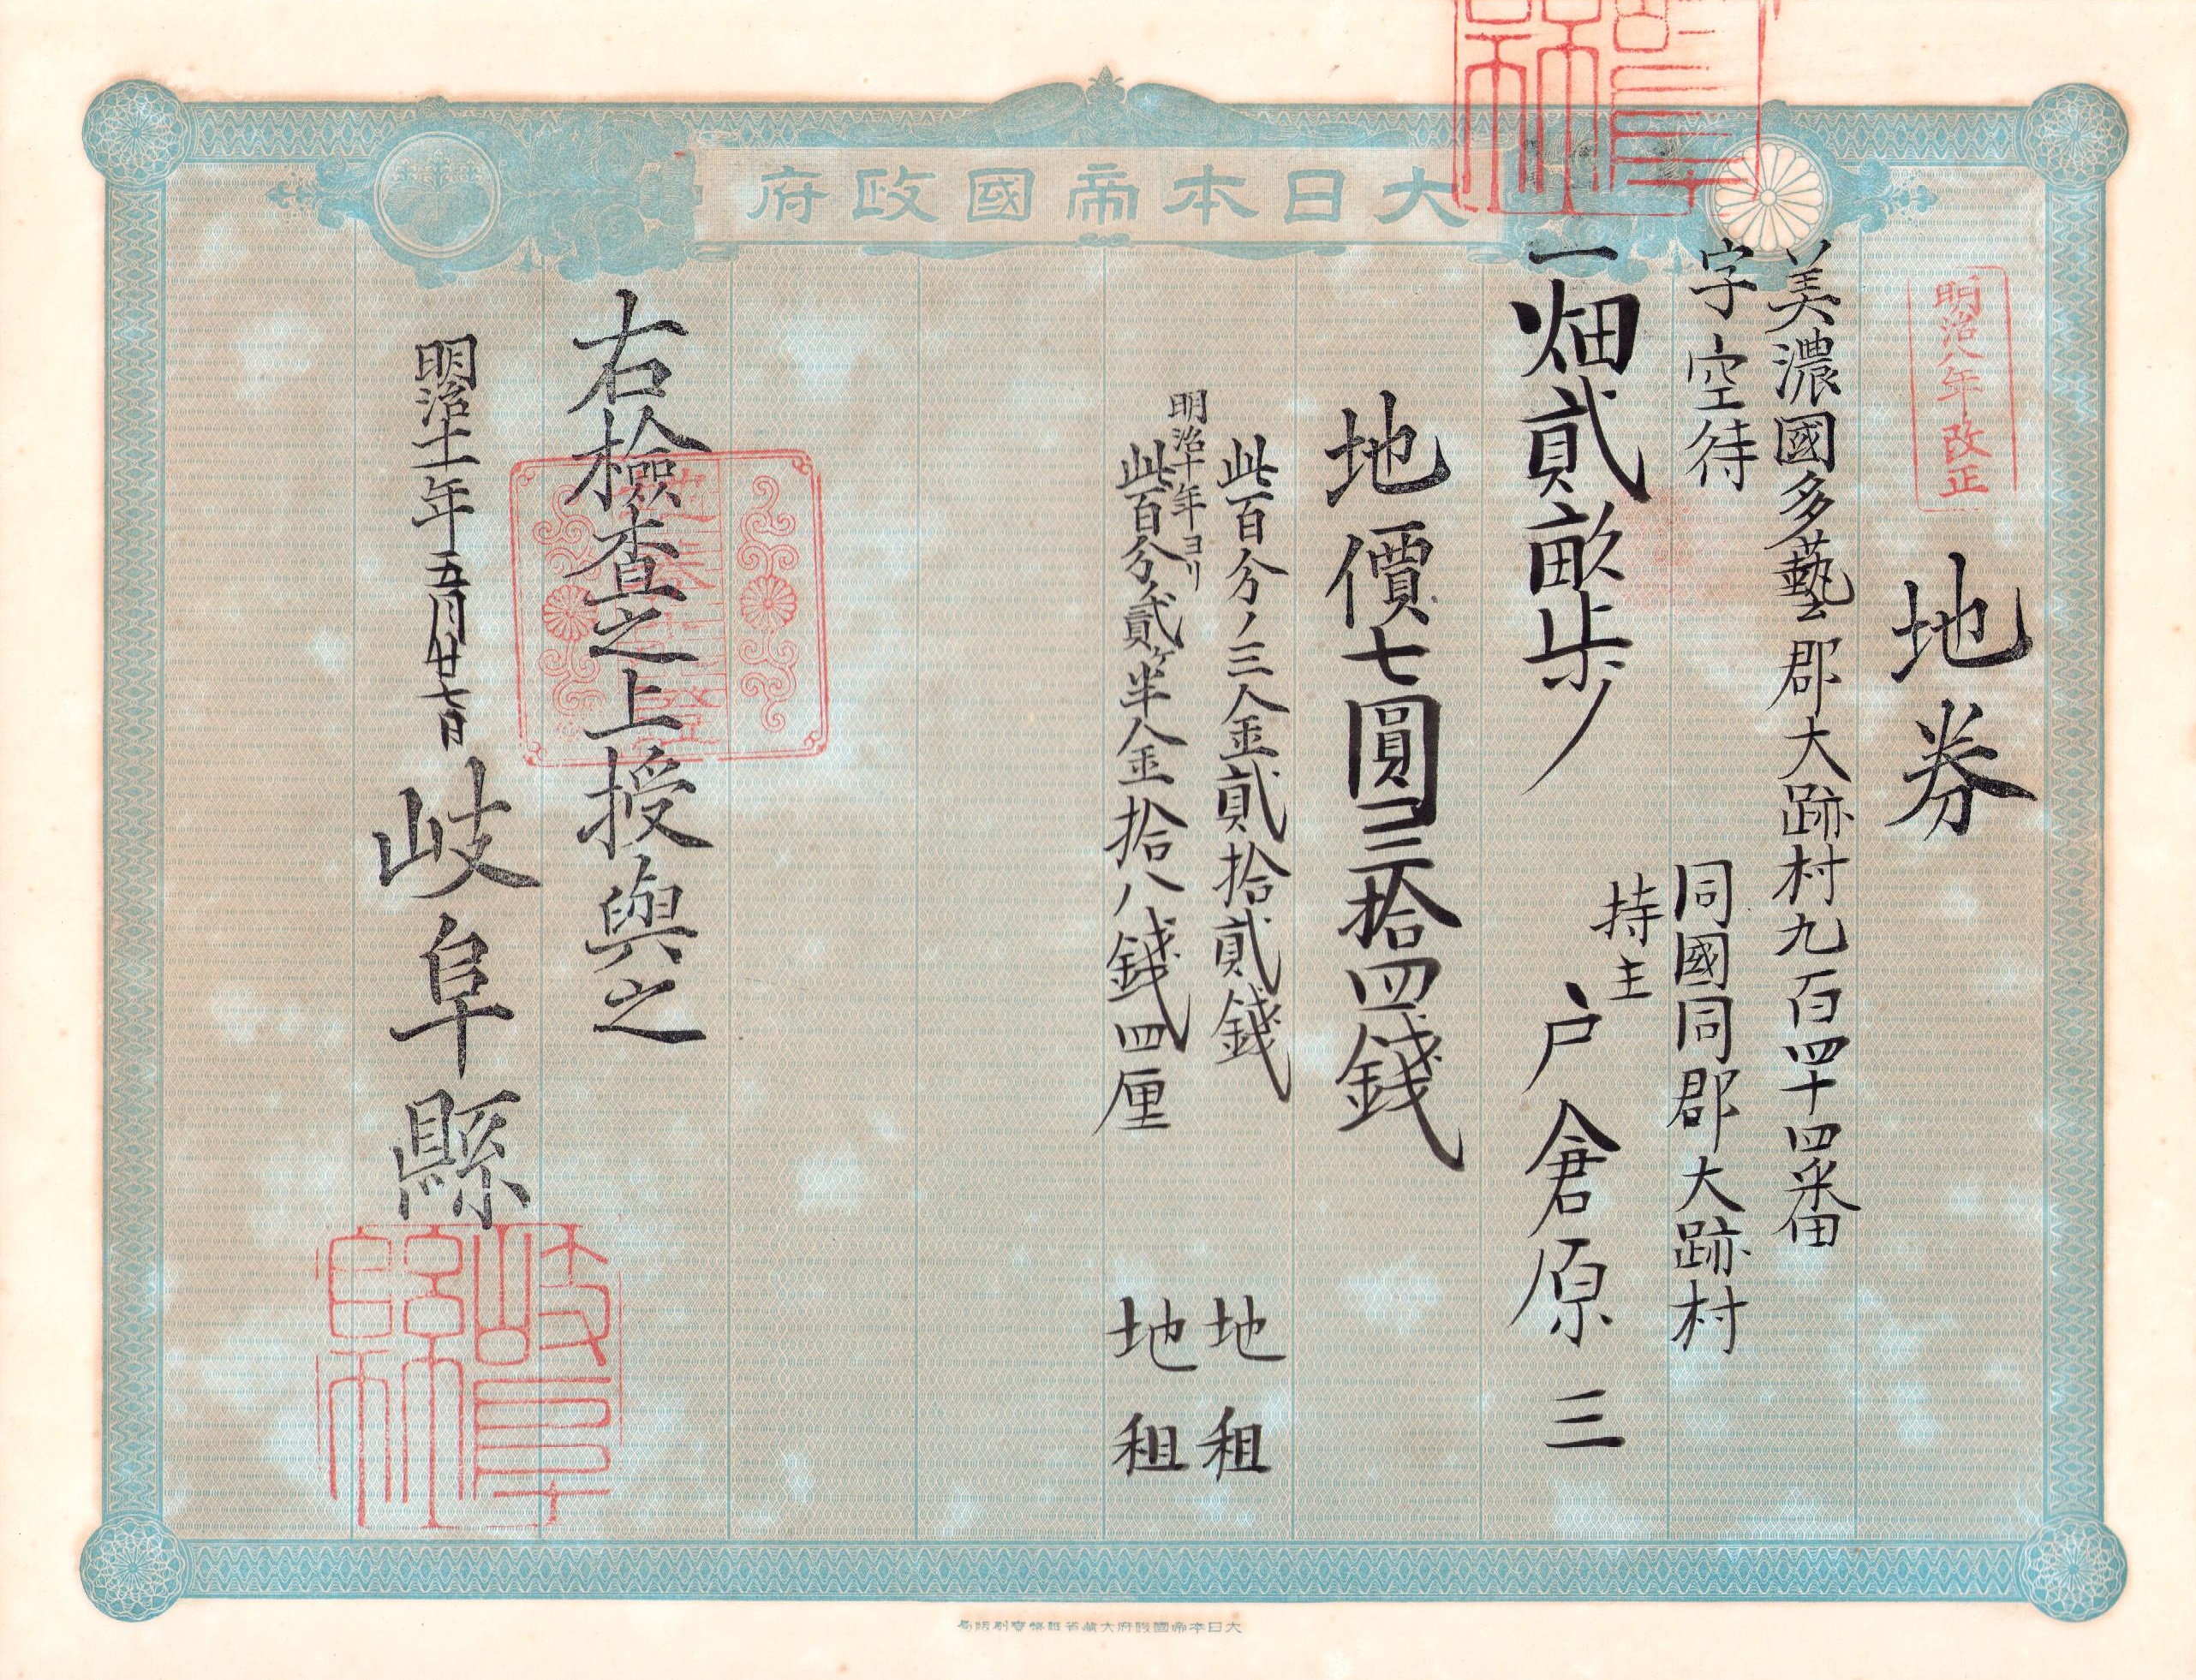 大日本帝國政府
明治八年改正
地券
美濃國多藝郡大跡村九百四十四番
字空待
同國同郡大跡村
持主
戸倉原三
一畑貳畝歩
地價七圓三拾四錢
此百分ノ三金貳拾貳錢 地租
明治十年ヨリ
此百分ノ貳ケ半金拾八錢四厘 地租
右檢査之上授與之
明治十一年五月廿七日
岐阜縣
岐阜縣
大日本帝國政府大蔵省紙幣寮刷版局